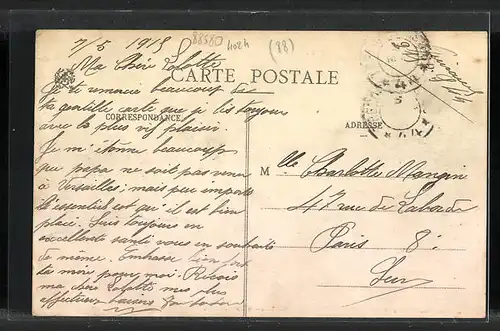 7/5 1915
88580
402h
(88)
Ma Chère Lolotte
CARTE POSTALE
Je te remercie beaucoup de
ta gentille carte que je lis toujours
CORRESPONDANCE
avec le plus vif plaisir.
ADRESSE
Je m'étonne beaucoup
que papa ne soit pas venu
à Versailles; mais peu importe
l'essentiel est qu'il est bien
placé. Suis toujours en
excellente santé vous en souhaite
de même. Embrasse bien fort
ta mère pour moi. Reçois
ma chère Lolotte mes plus
affectueux baisers
M lle Charlotte Mangin
47 rue de Laborde
Paris 8e